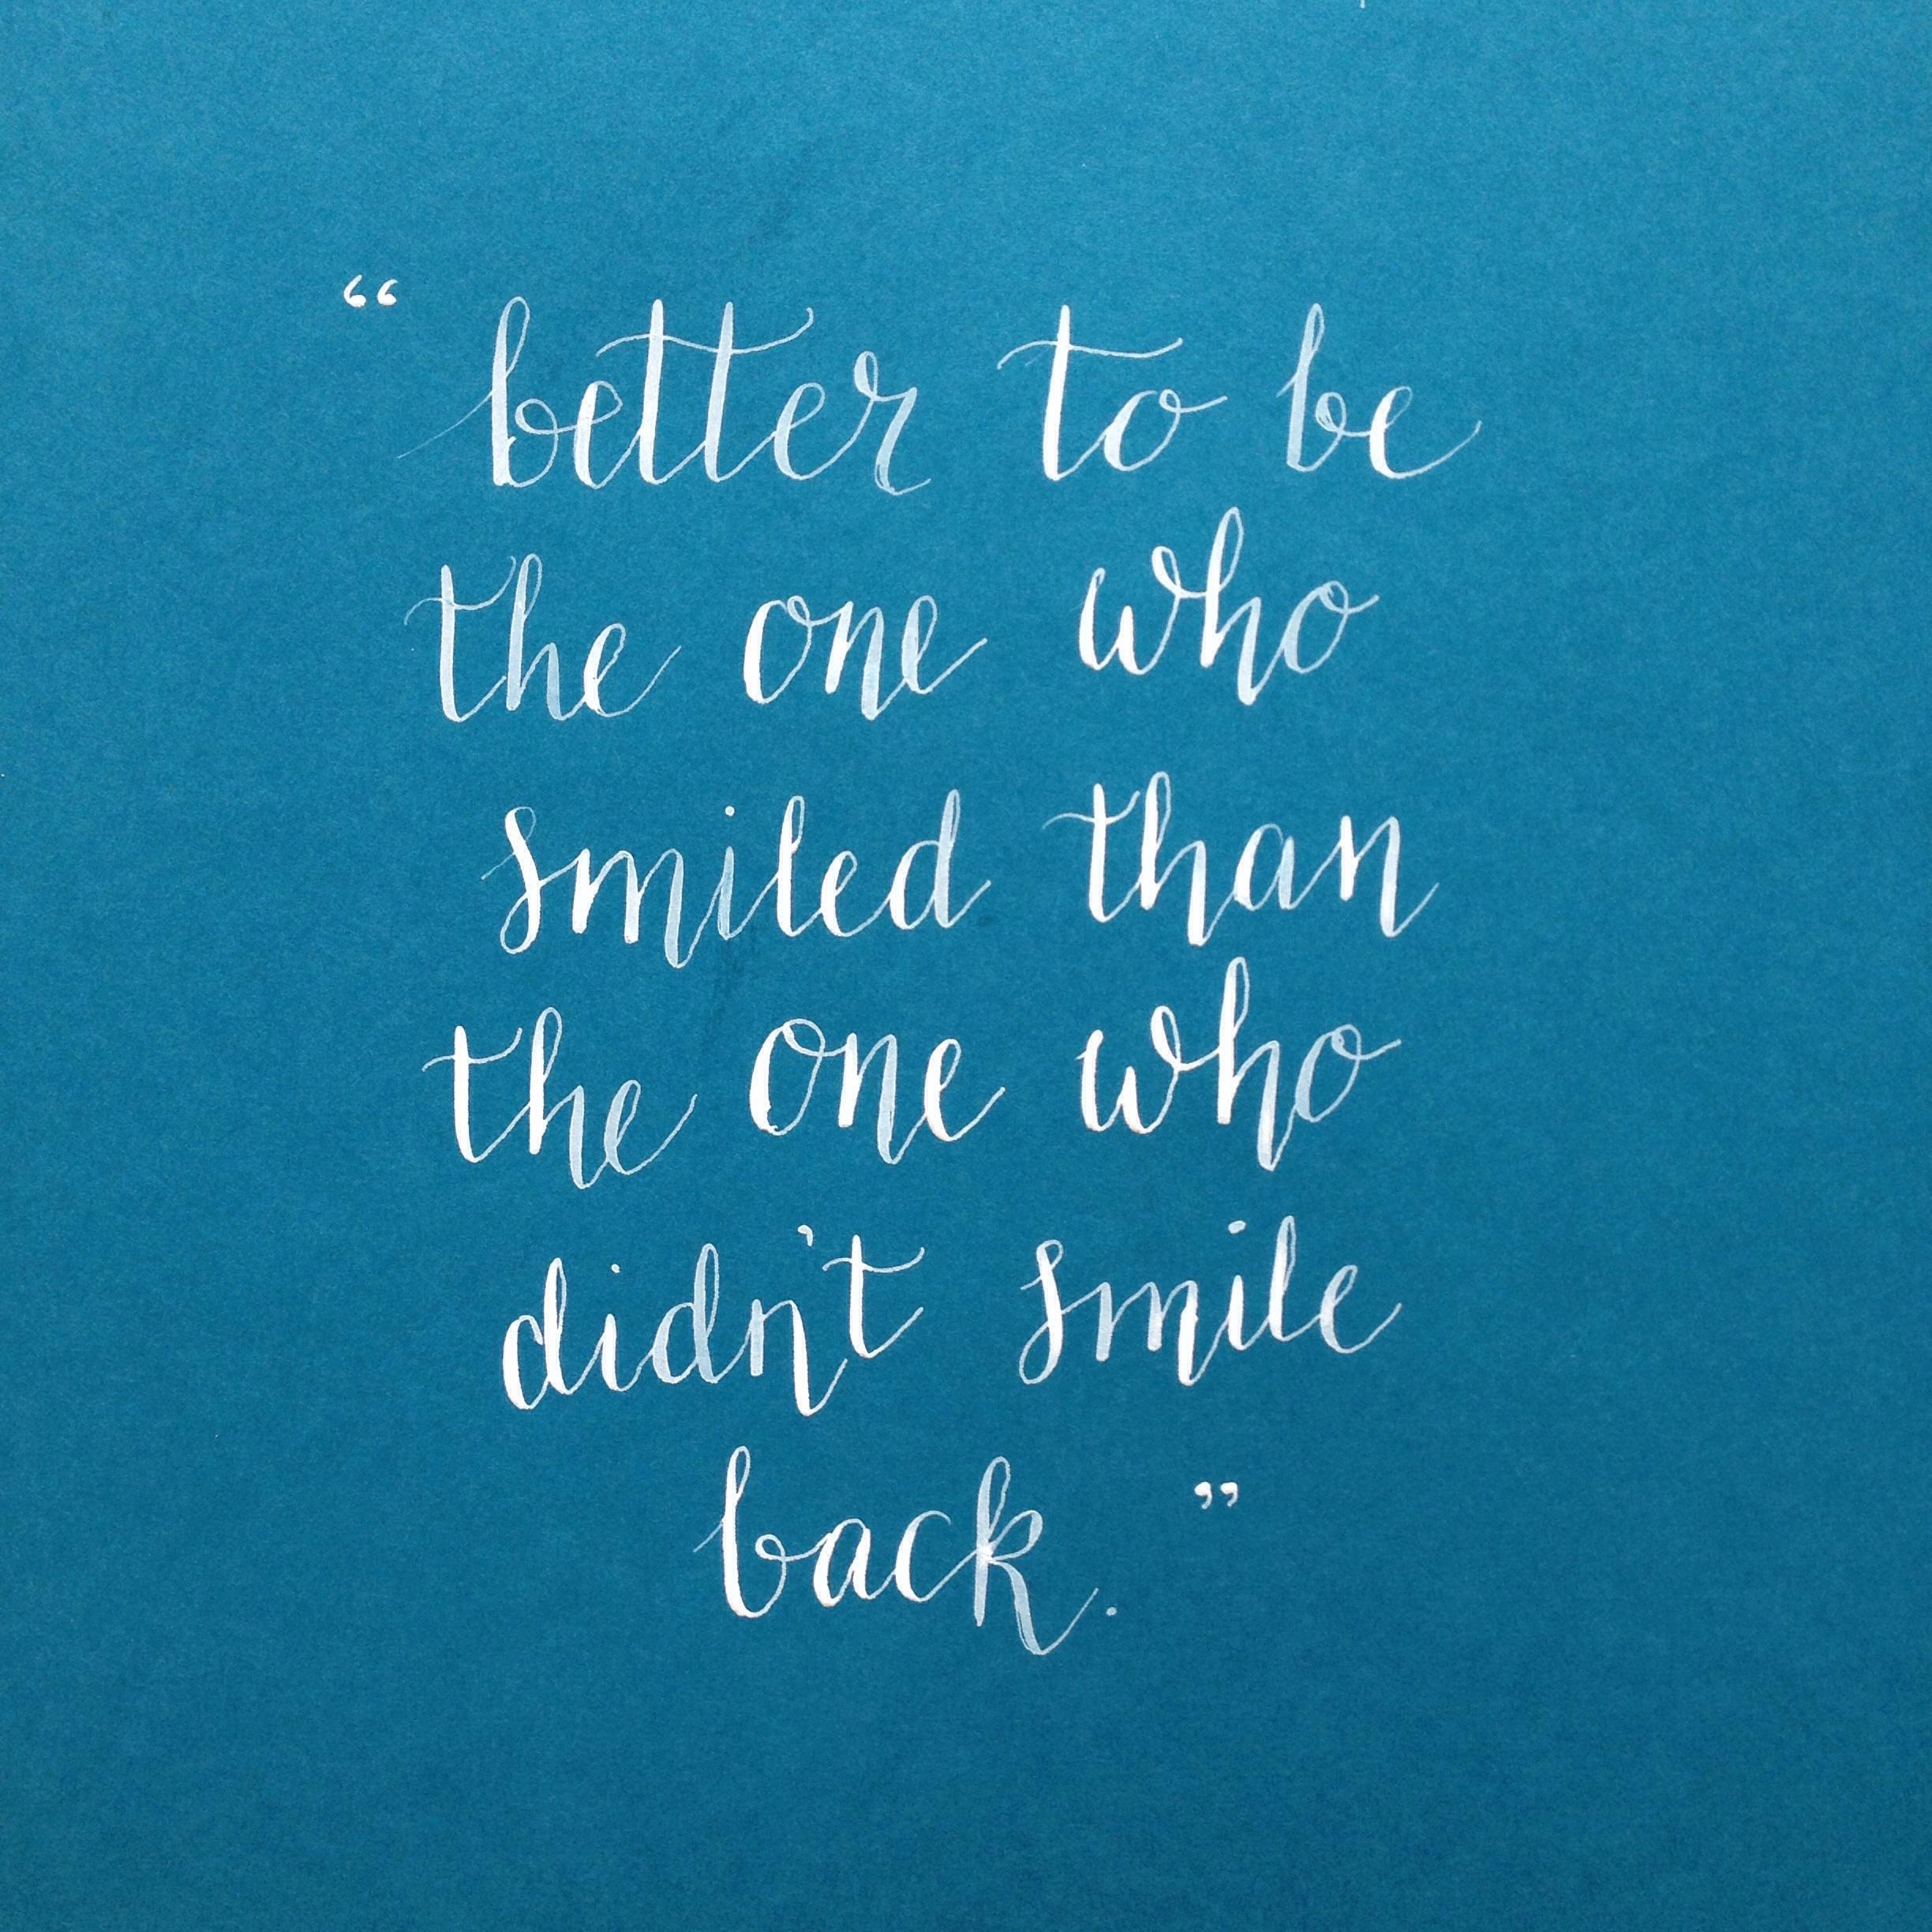 “better to be
the one who
smiled than
the one who
didn't smile
back.”